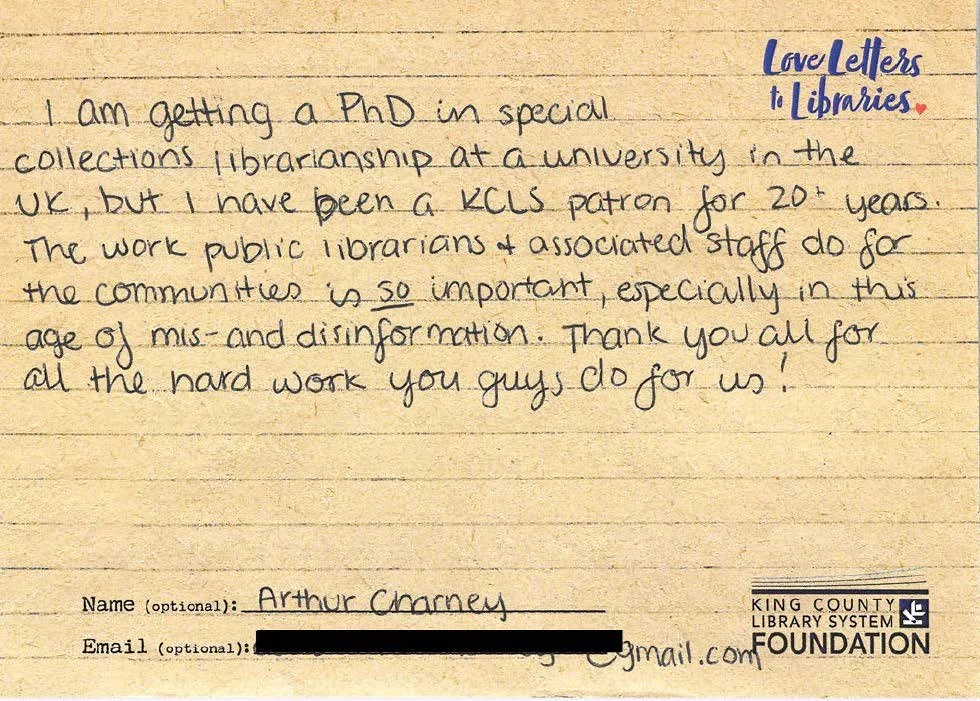 Love Letters
to Libraries
I am getting a PhD in special
collections librarianship at a university in the
UK, but I have been a KCLS patron for 20+ years.
The work public librarians + associated staff do for
the communities is so important, especially in this
age of mis- and disinformation. Thank you all for
all the hard work you guys do for us!
Name (optional): Arthur Charney
Email (optional): @gmail.com
KING COUNTY
LIBRARY SYSTEM
FOUNDATION